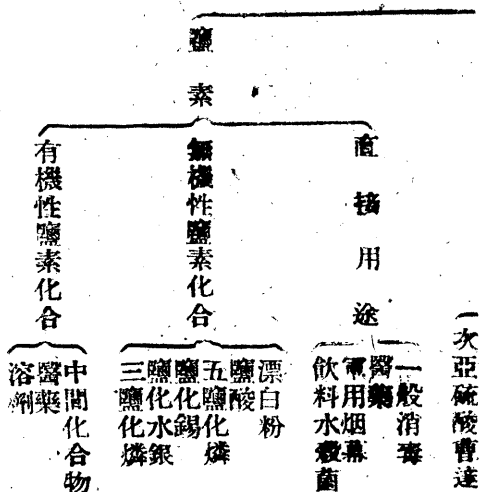 鹽素
直接用途
一般消毒
醫藥
軍用烟幕
飲料水殺菌
無機性鹽素化合
漂白粉
鹽酸
五鹽化燐
鹽化錫
鹽化水銀
三鹽化燐
有機性鹽素化合
中間化合物
醫藥
溶劑
次亞硫酸曹達